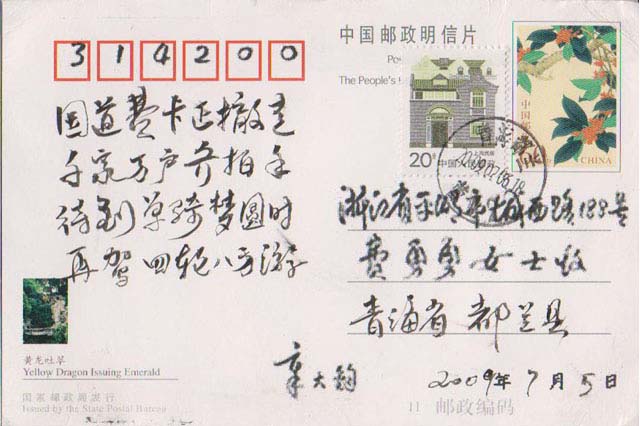 314200
中国邮政明信片
Po
The People's
国道费卡正撤走
千家万户齐拍手
待到单骑梦圆时
再驾四轮八方游
20分
中国人民邮政
中国邮政
CHINA
浙江省平湖市城西路188号
费勇勇女士收
青海省都兰县
章大钧
2009年7月5日
黄龙吐翠
Yellow Dragon Issuing Emerald
国家邮政局发行
Issued by the State Postal Bureau
11 邮政编码